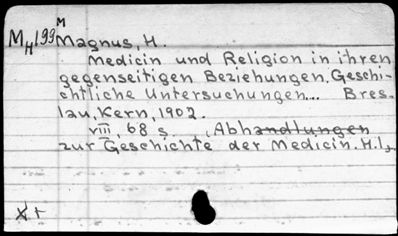 M
MH199 Magnus, H.
Medicin und Religion in ihren
gegenseitigen Beziehungen. Geschi-
chtliche Untersuchungen... Bres-
lau, Kern, 1902.
VIII, 68 s. (Abhandlungen
zur Geschichte der Medicin. H.1).